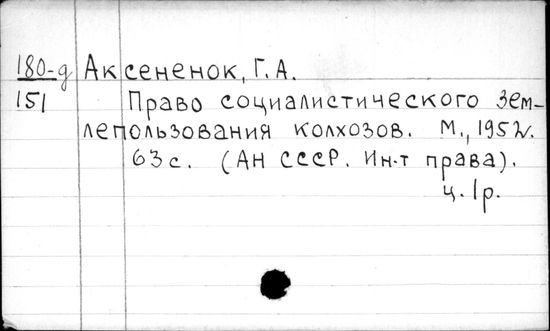 180-д Аксененок, Г.А.
151 Право социалистического зем-
лепользования колхозов. М., 1952.
63 с. (АН СССР. Ин-т права).
ц. 1р.